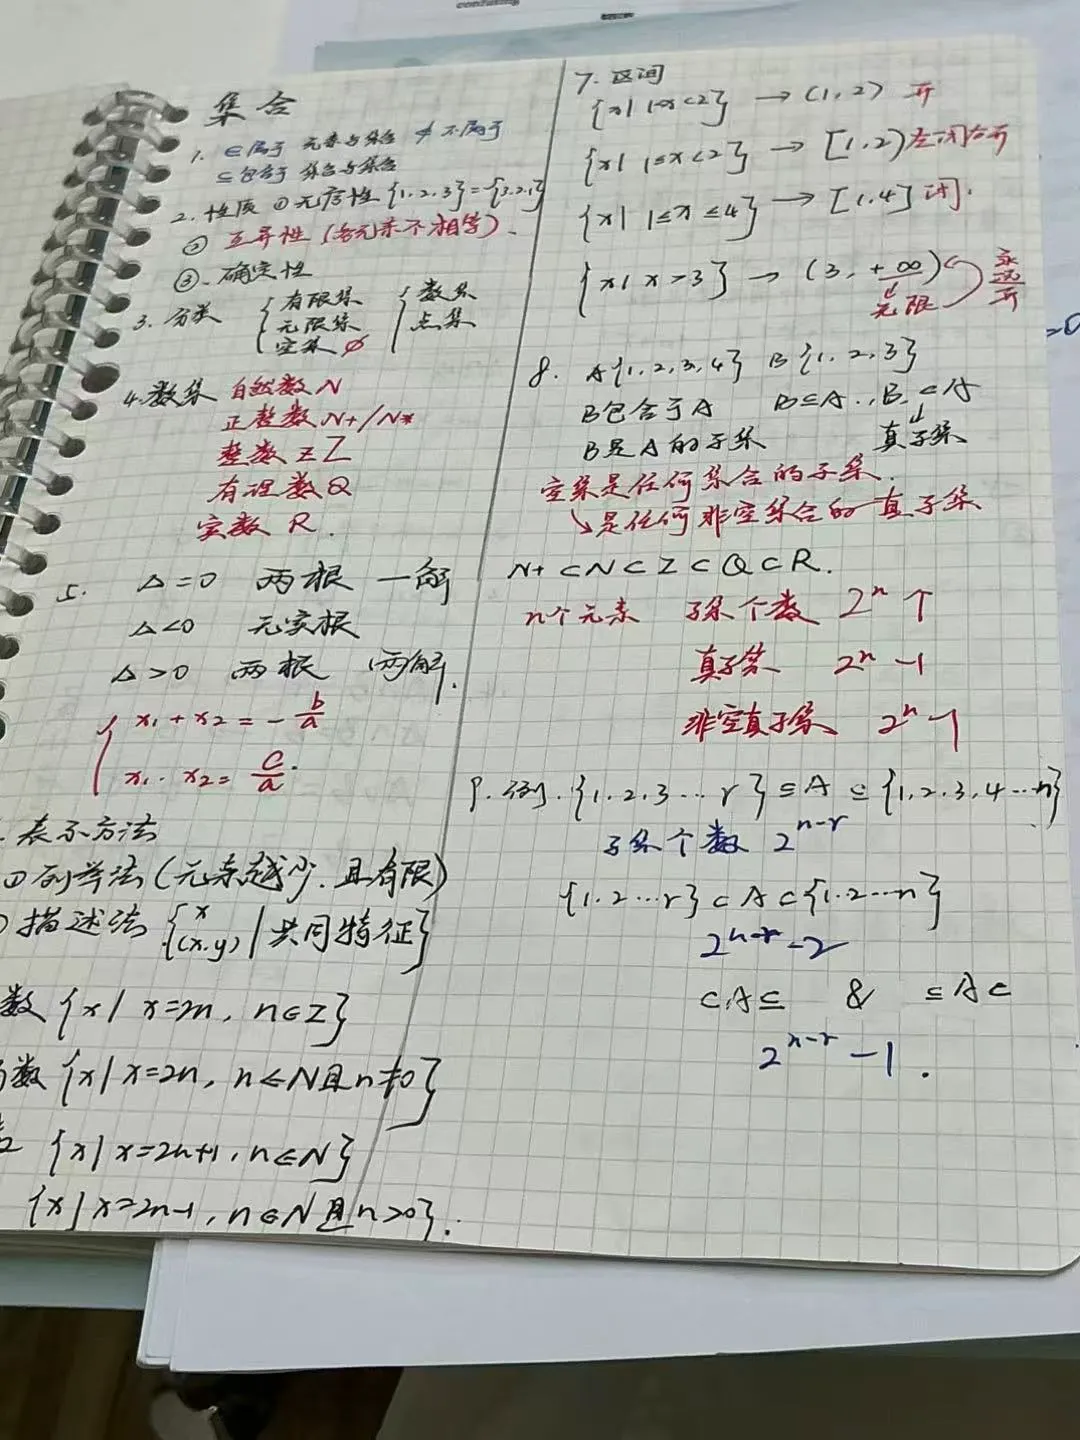 集合
1. ∈属于 元素与集合 ∉不属于
⊆包含于 集合与集合
2. 性质 ①无序性 {1,2,3}={3,2,1}
② 互异性 (各元素不相等).
③. 确定性
3. 分类 { 有限集 { 数集
无限集 点集
空集 ∅
4. 数集 自然数 N
正整数 N+/N*
整数 Z Z
有理数 Q
实数 R.
5. Δ=0 两根 一解
Δ<0 无实根
Δ>0 两根 两解.
{ x₁+x₂=-b/a
x₁·x₂=c/a.
表示方法
①列举法(元素越少.且有限)
描述法 {x (x,y)|共同特征}
数 {x| x=2n, n∈Z}
数 {x| x=2n, n∈N且n≠0}
{x| x=2n+1, n∈N}
{x| x=2n-1, n∈N且n>0}.
7. 区间
{x| 1<x<2} → (1,2) 开
{x| 1≤x<2} → [1,2) 左闭右开
{x| 1≤x≤4} → [1,4] 闭.
{x| x>3} → (3,+∞) 永远开
无限
8. A{1,2,3,4} B{1,2,3}
B包含于A B⊆A., B⊂A
B是A的子集 真子集
空集是任何集合的子集.
↘是任何非空集合的真子集
N+⊂N⊂Z⊂Q⊂R.
n个元素 子集个数 2ⁿ 个
真子集 2ⁿ-1
非空真子集 2ⁿ-1
9. 例. {1,2,3…r}⊆A⊆{1,2,3,4…n}
子集个数 2ⁿ⁻ʳ
{1.2…r}⊂A⊂{1.2…n}
2ⁿ⁻ʳ-2
⊂A⊆ & ⊆A⊂
2ⁿ⁻ʳ-1.